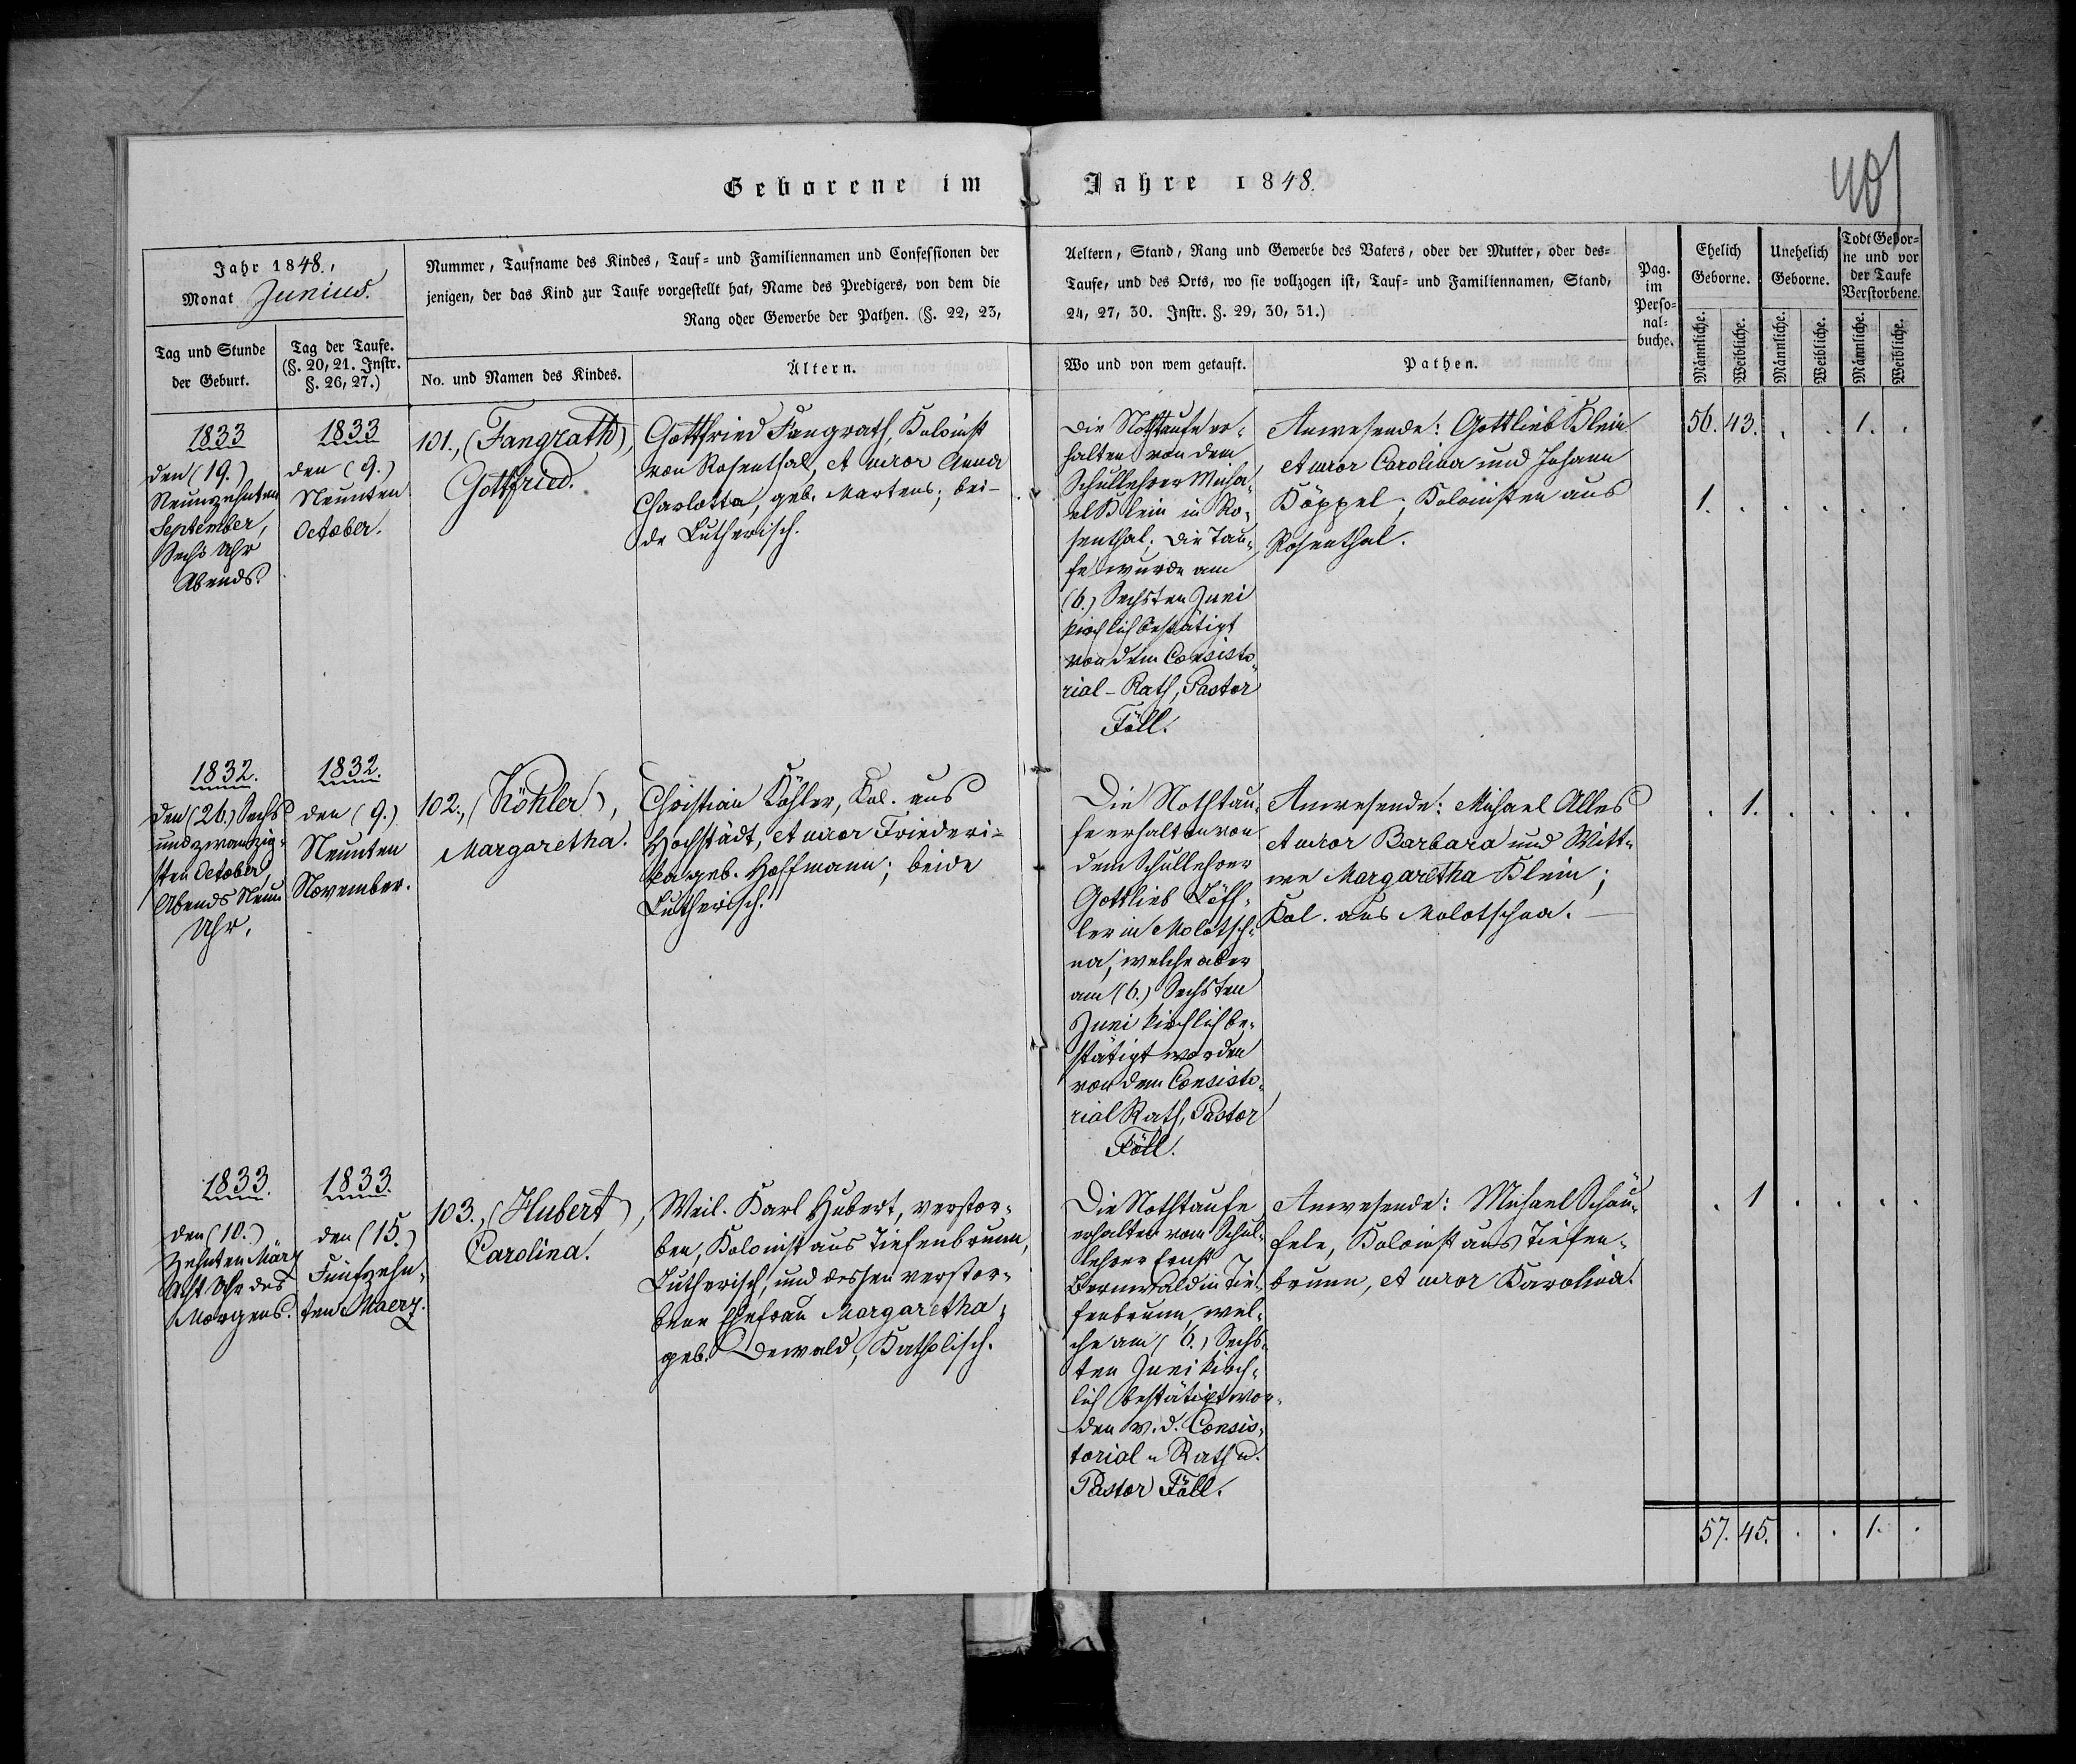 Geborene im Jahre 1848.
401
Jahr 1848.,
Monat Junius.
Nummer, Taufname des Kindes, Tauf- und Familiennamen und Confessionen der
jenigen, der das Kind zur Taufe vorgestellt hat, Name des Predigers, von dem die
Rang oder Gewerbe der Pathen. (§. 22, 23,
Aeltern, Stand, Rang und Gewerbe des Vaters, oder der Mutter, oder des-
Taufe, und des Orts, wo sie vollzogen ist, Tauf- und Familiennamen, Stand,
24, 27, 30. Instr. §. 29, 30, 31.)
Pag.
im
Perso-
nal-
buche.
Ehelich
Geborne.
Unehelich
Geborne.
Todt Gebor-
ne und vor
der Taufe
Verstorbene.
Tag und Stunde
der Geburt.
Tag der Taufe.
(§. 20, 21. Instr.
§. 26, 27.)
No. und Namen des Kindes.
Ältern.
Wo und von wem getauft.
Pathen.
Männliche.
Weibliche.
Männliche.
Weibliche.
Männliche.
Weibliche.
56. 43. . . 1. .
1833
den (19.)
Neunzehnten
September,
Sechs Uhr
Abends.
1833
den (9.)
Neunten
October.
101., (Fangrath),
Gottfried.
Gottfried Fangrath, Kolonist
von Rosenthal, et uxor Anna
Charlotta, geb. Martens; bei-
de Lutherisch.
Die Nothtaufe er-
halten von dem
Schullehrer Micha-
el Klein in Ro-
senthal; die Tau-
fe wurde am
(6.) Sechsten Juni
kirchlich bestätigt
von dem Consisto-
rial-Rath, Pastor
Föll.
Anwesende: Gottlieb Klein
et uxor Carolina und Johann
Köppel; Kolonisten aus
Rosenthal.
1. . . . . .
1832.
den (26.) Sechs
und zwanzig-
sten October,
Abends Neun
Uhr.
1832.
den (9.)
Neunten
November.
102., (Köhler),
Margaretha.
Christian Köhler, Kol. aus
Hochstädt, et uxor Friederi-
ka geb. Hoffmann; beide
Lutherisch.
Die Nothtau-
fe erhalten von
dem Schullehrer
Gottlieb Löff-
ler in Molotsch-
na, welche aber
am (6.) Sechsten
Juni kirchlich be-
stätigt worden
von dem Consisto-
rial Rath, Pastor
Föll.
Anwesende: Michael Alles
et uxor Barbara und Witt-
we Margaretha Klein;
Kol. aus Molotschna. —
. 1. . . . .
1833.
den (10.)
Zehnten März
Acht Uhr des
Morgens.
1833.
den (15.)
Fünfzehn-
ten Maerz.
103., (Hubert),
Carolina.
Weil. Karl Hubert, verstor-
ben, Kolonist aus Tiefenbrunn,
Lutherisch, und dessen verstor-
bene Ehefrau Margaretha,
geb. Dewald, Katholisch.
Die Nothtaufe
erhalten vom Schul-
lehrer Ernst
Bernwald in Tie-
fenbrunn, wel-
che am (6.) Sechs-
ten Juni kirch-
lich bestätigt wor-
den v. d. Consis-
torial-Rath u.
Pastor Föll.
Anwesende: Michael Schäu-
fele, Kolonist aus Tiefen-
brunn, et uxor Karolina.
. 1 . . . .
57. 45. . . 1. .